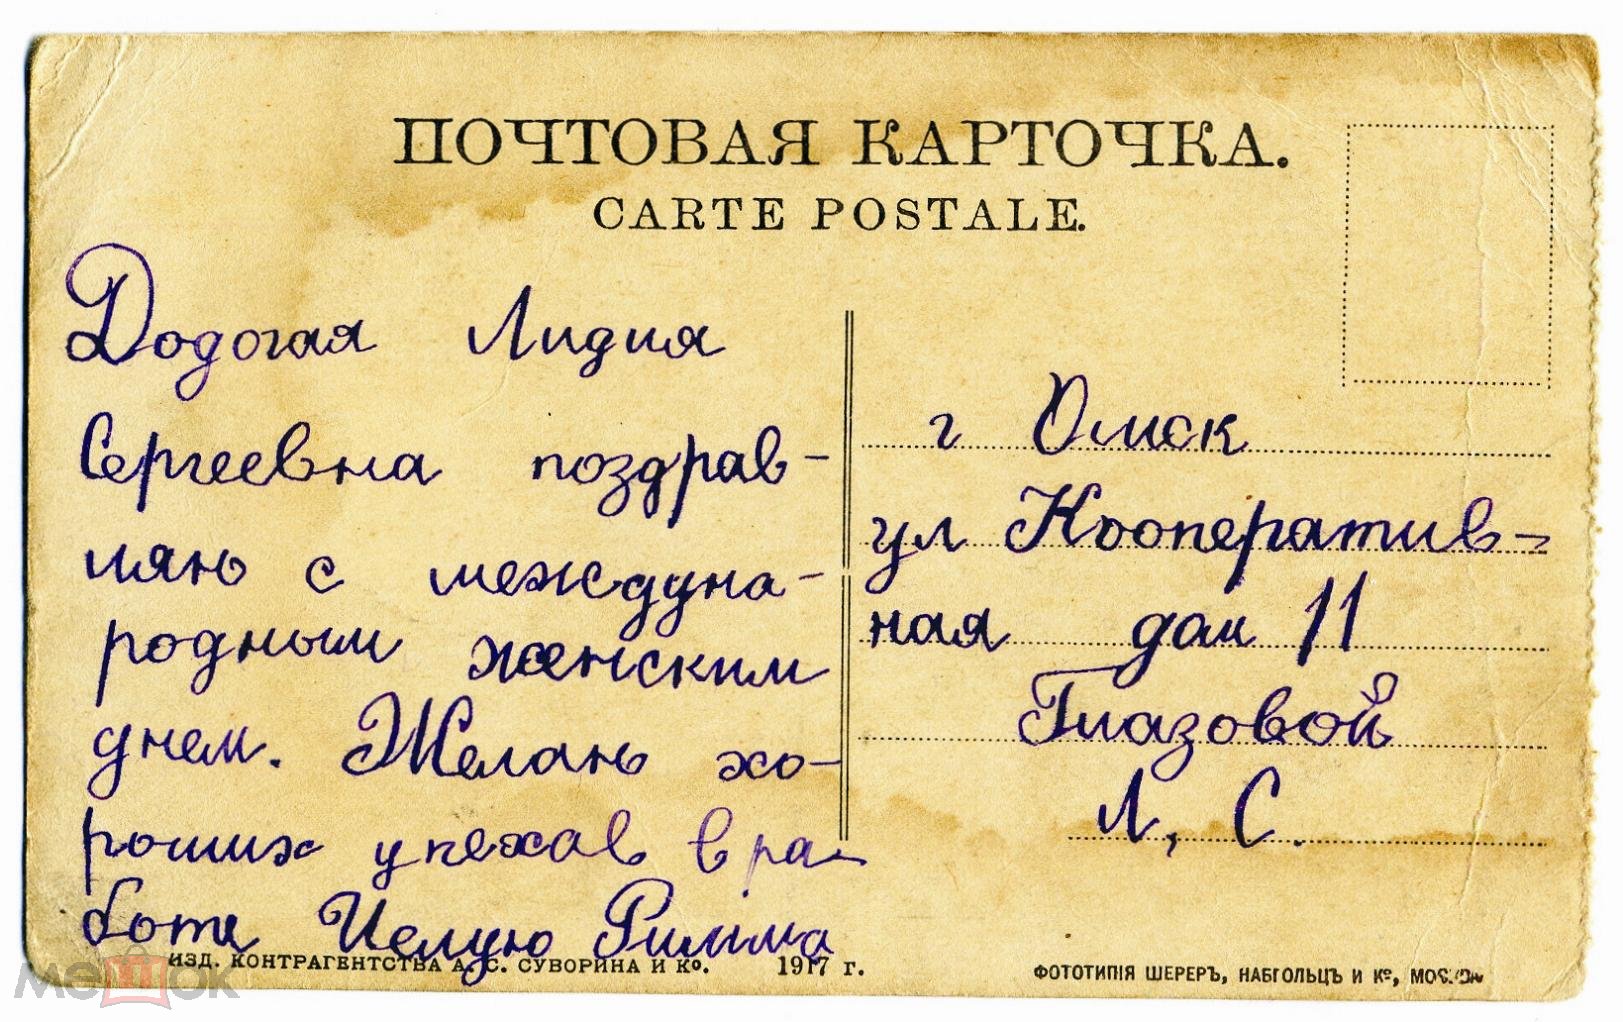 ПОЧТОВАЯ КАРТОЧКА.
CARTE POSTALE.
Додогая Лидия
Сергеевна поздрав-
ляю с междуна-
родным женским
днем. Желаю хо-
роших упехов в ра-
боте Целую Римма
г Омск
ул Кооператив-
ная дом 11
Глазовой
Л, С.
ИЗД. КОНТРАГЕНТСТВА А. С. СУВОРИНА И Ко. 1917 г.
ФОТОТИПІЯ ШЕРЕРЪ, НАБГОЛЬЦЪ И Ко, МОСКВА
мешок